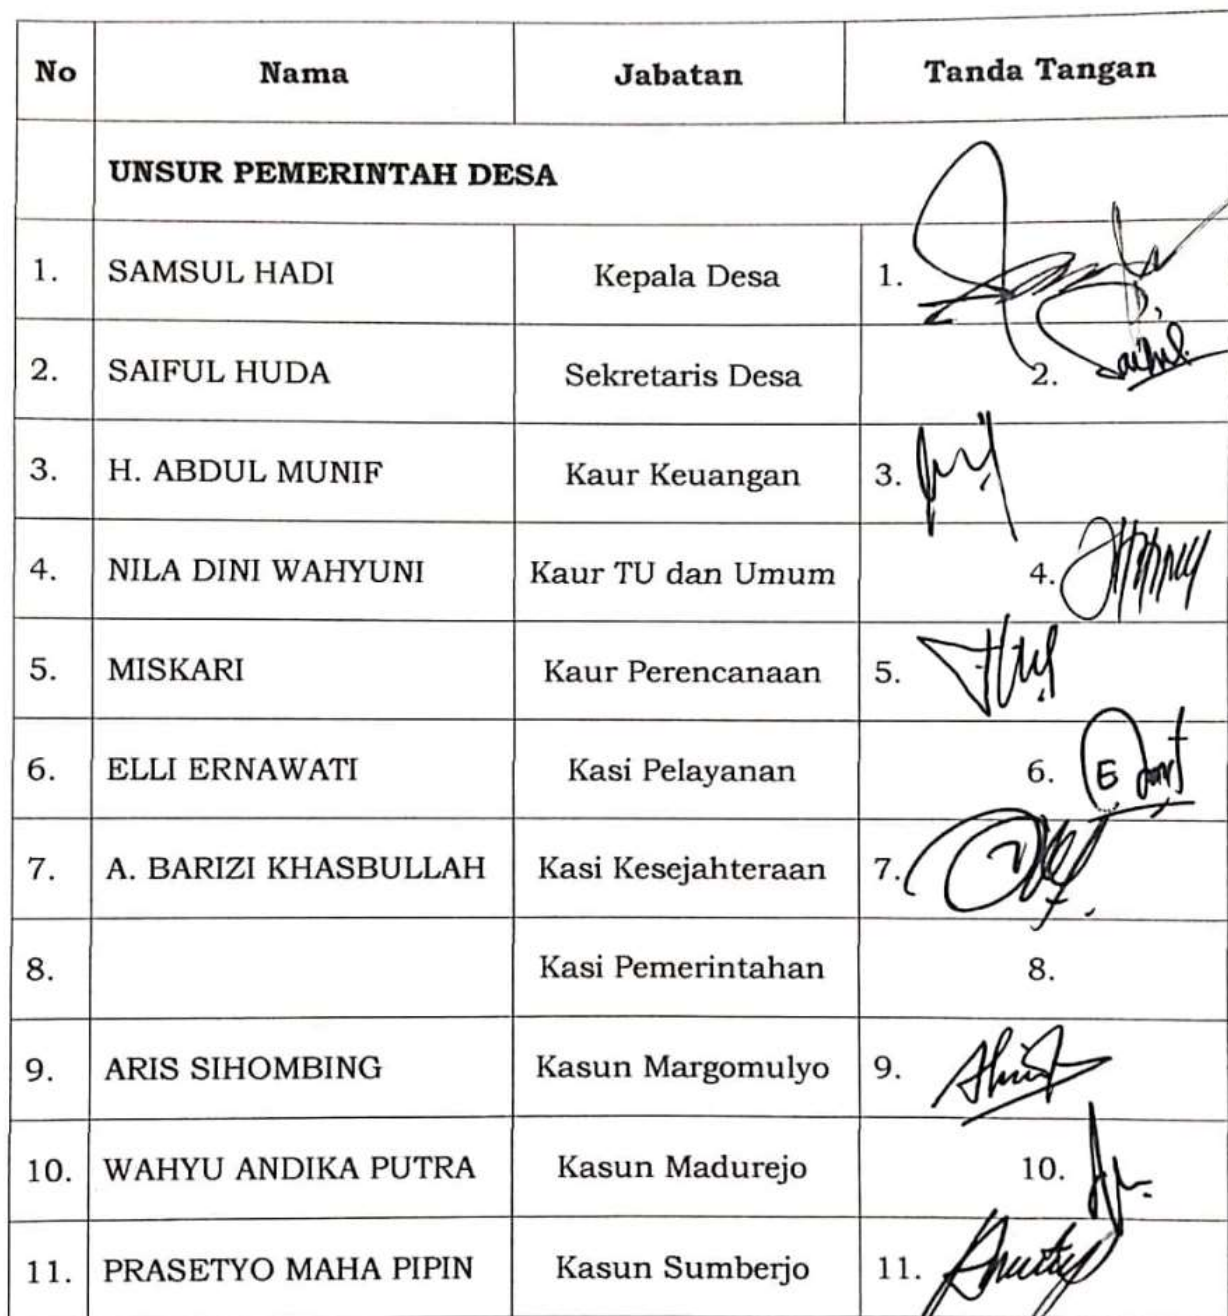 No Nama Jabatan Tanda Tangan
UNSUR PEMERINTAH DESA
1. SAMSUL HADI Kepala Desa 1.
2. SAIFUL HUDA Sekretaris Desa 2.
3. H. ABDUL MUNIF Kaur Keuangan 3.
4. NILA DINI WAHYUNI Kaur TU dan Umum 4.
5. MISKARI Kaur Perencanaan 5.
6. ELLI ERNAWATI Kasi Pelayanan 6.
7. A. BARIZI KHASBULLAH Kasi Kesejahteraan 7.
8. Kasi Pemerintahan 8.
9. ARIS SIHOMBING Kasun Margomulyo 9.
10. WAHYU ANDIKA PUTRA Kasun Madurejo 10.
11. PRASETYO MAHA PIPIN Kasun Sumberjo 11.